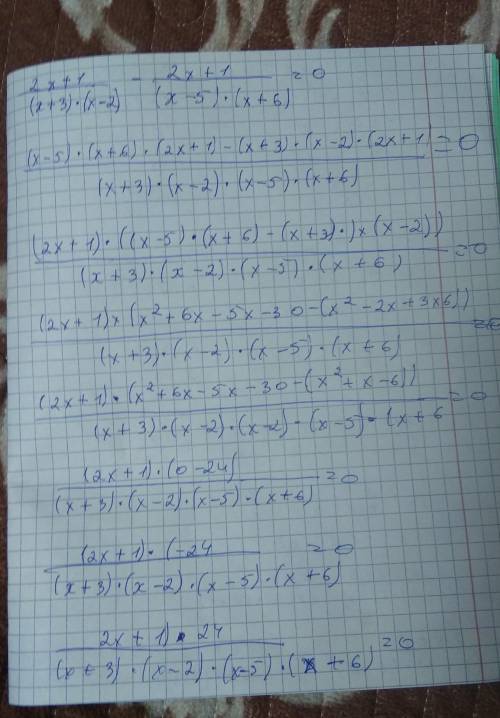 (2x+1)/((x+3)·(x-2)) - (2x+1)/((x-5)·(x+6)) =0
((x-5)·(x+6)·(2x+1)-(x+3)·(x-2)·(2x+1)/((x+3)·(x-2)·(x-5)·(x+6)) =0
((2x+1)·((x-5)·(x+6)-(x+3)·)x(x-2))/((x+3)·(x-2)·(x-5)·(x+6)) =0
((2x+1)x(x²+6x-5x-30-(x²-2x+3x6))/((x+3)·(x-2)·(x-5)·(x+6)) =0
((2x+1)·(x²+6x-5x-30-(x²+x-6))/((x+3)·(x-2)·(x-2)-(x-5)·(x+6) =0
((2x+1)·(0-24)/((x+3)·(x-2)·(x-5)·(x+6)) =0
((2x+1)·(-24)/((x+3)·(x-2)·(x-5)·(x+6)) =0
(2x+1)·24/((x+3)·(x-2)·(x-5)·(x+6)) =0